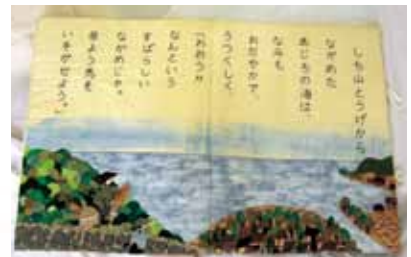 しち山とうげから
ながめた
あじちの海は、
なみも
おだやかで、
うつくしく
「おおう!!
なんという
すばらしい
ながめじゃ。
者よう馬を
いそがせよう。」